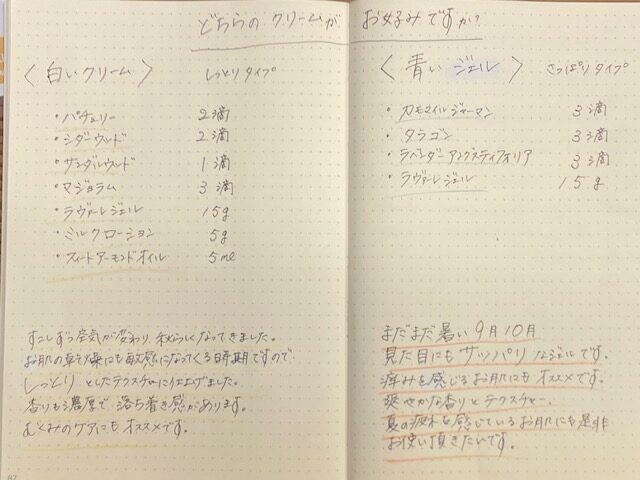 どちらの クリームが お好みですか?
〈 白いクリーム 〉 しっとりタイプ
・パチュリー 2滴
・シダーウッド 2滴
・サンダルウッド 1滴
・マジョラム 3滴
・ラヴァーレジェル 15g
・ミルクローション 5g
・スィートアーモンドオイル 5ml
すこしずつ空気が変わり、秋らしくなってきました。
お肌の乾燥にも敏感になってくる時期ですので
しっとり としたテクスチャーに仕上げました。
香りも濃厚で、落ち着き感があります。
むくみのケアにもオススメです。
〈 青い ジェル 〉 さっぱりタイプ
・カモマイルジャーマン 3滴
・タラゴン 3滴
・ラベンダーアングスティフォリア 3滴
・ラヴァーレジェル 15g
まだまだ暑い 9月 10月
見た目にも サッパリ なジェルです。
痛みを感じるお肌にもオススメです。
爽やかな香りとテクスチャー、
夏の疲れを感じているお肌にも是非
お使い頂きたいです。